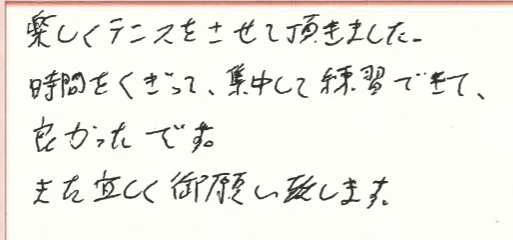 楽しくテニスをさせて頂きました。
時間をくぎって、集中して練習できて、
良かったです。
また宜しく御願い致します。